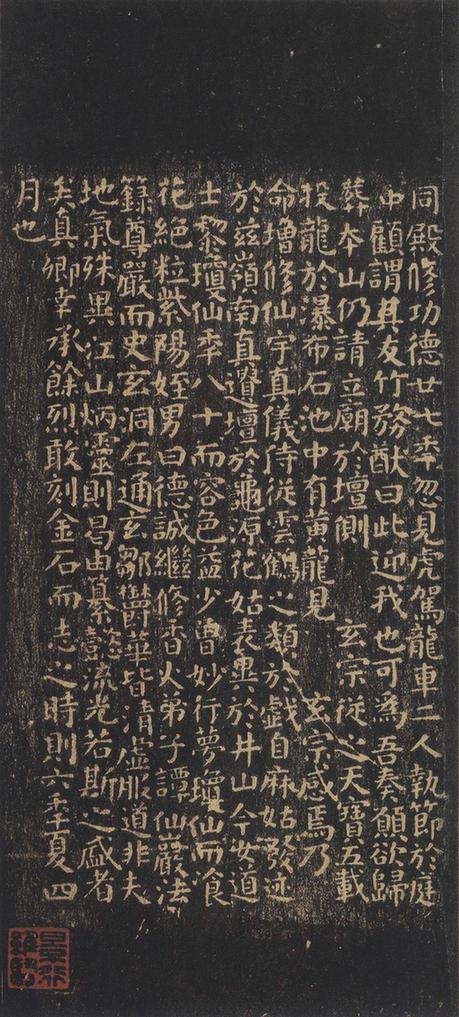 同殿修功德廿七年忽見虎駕龍車二人執節於庭
中顧謂其友竹務猷曰此迎我也可為吾奏願欲歸
葬本山仍請立廟於壇側　玄宗從之天寶五載
投龍於瀑布石池中有黃龍見　玄宗感焉乃
命增修仙宇真儀侍從雲鶴之類於戲自麻姑發迹
於茲嶺南真遺壇於龜源花姑表異於井山今女道
士黎瓊仙年八十而容色益少曾妙行夢瓊仙而飡
花絕粒紫陽姪男曰德誠繼修香火弟子譚仙巖法
籙尊嚴而史玄洞左通玄鄒鬱華皆清虛服道非夫
地氣殊異江山炳靈則曷由纂懿流光若斯之盛者
矣真卿幸承餘烈敢刻金石而志之時則六年夏四
月也
景行維賢